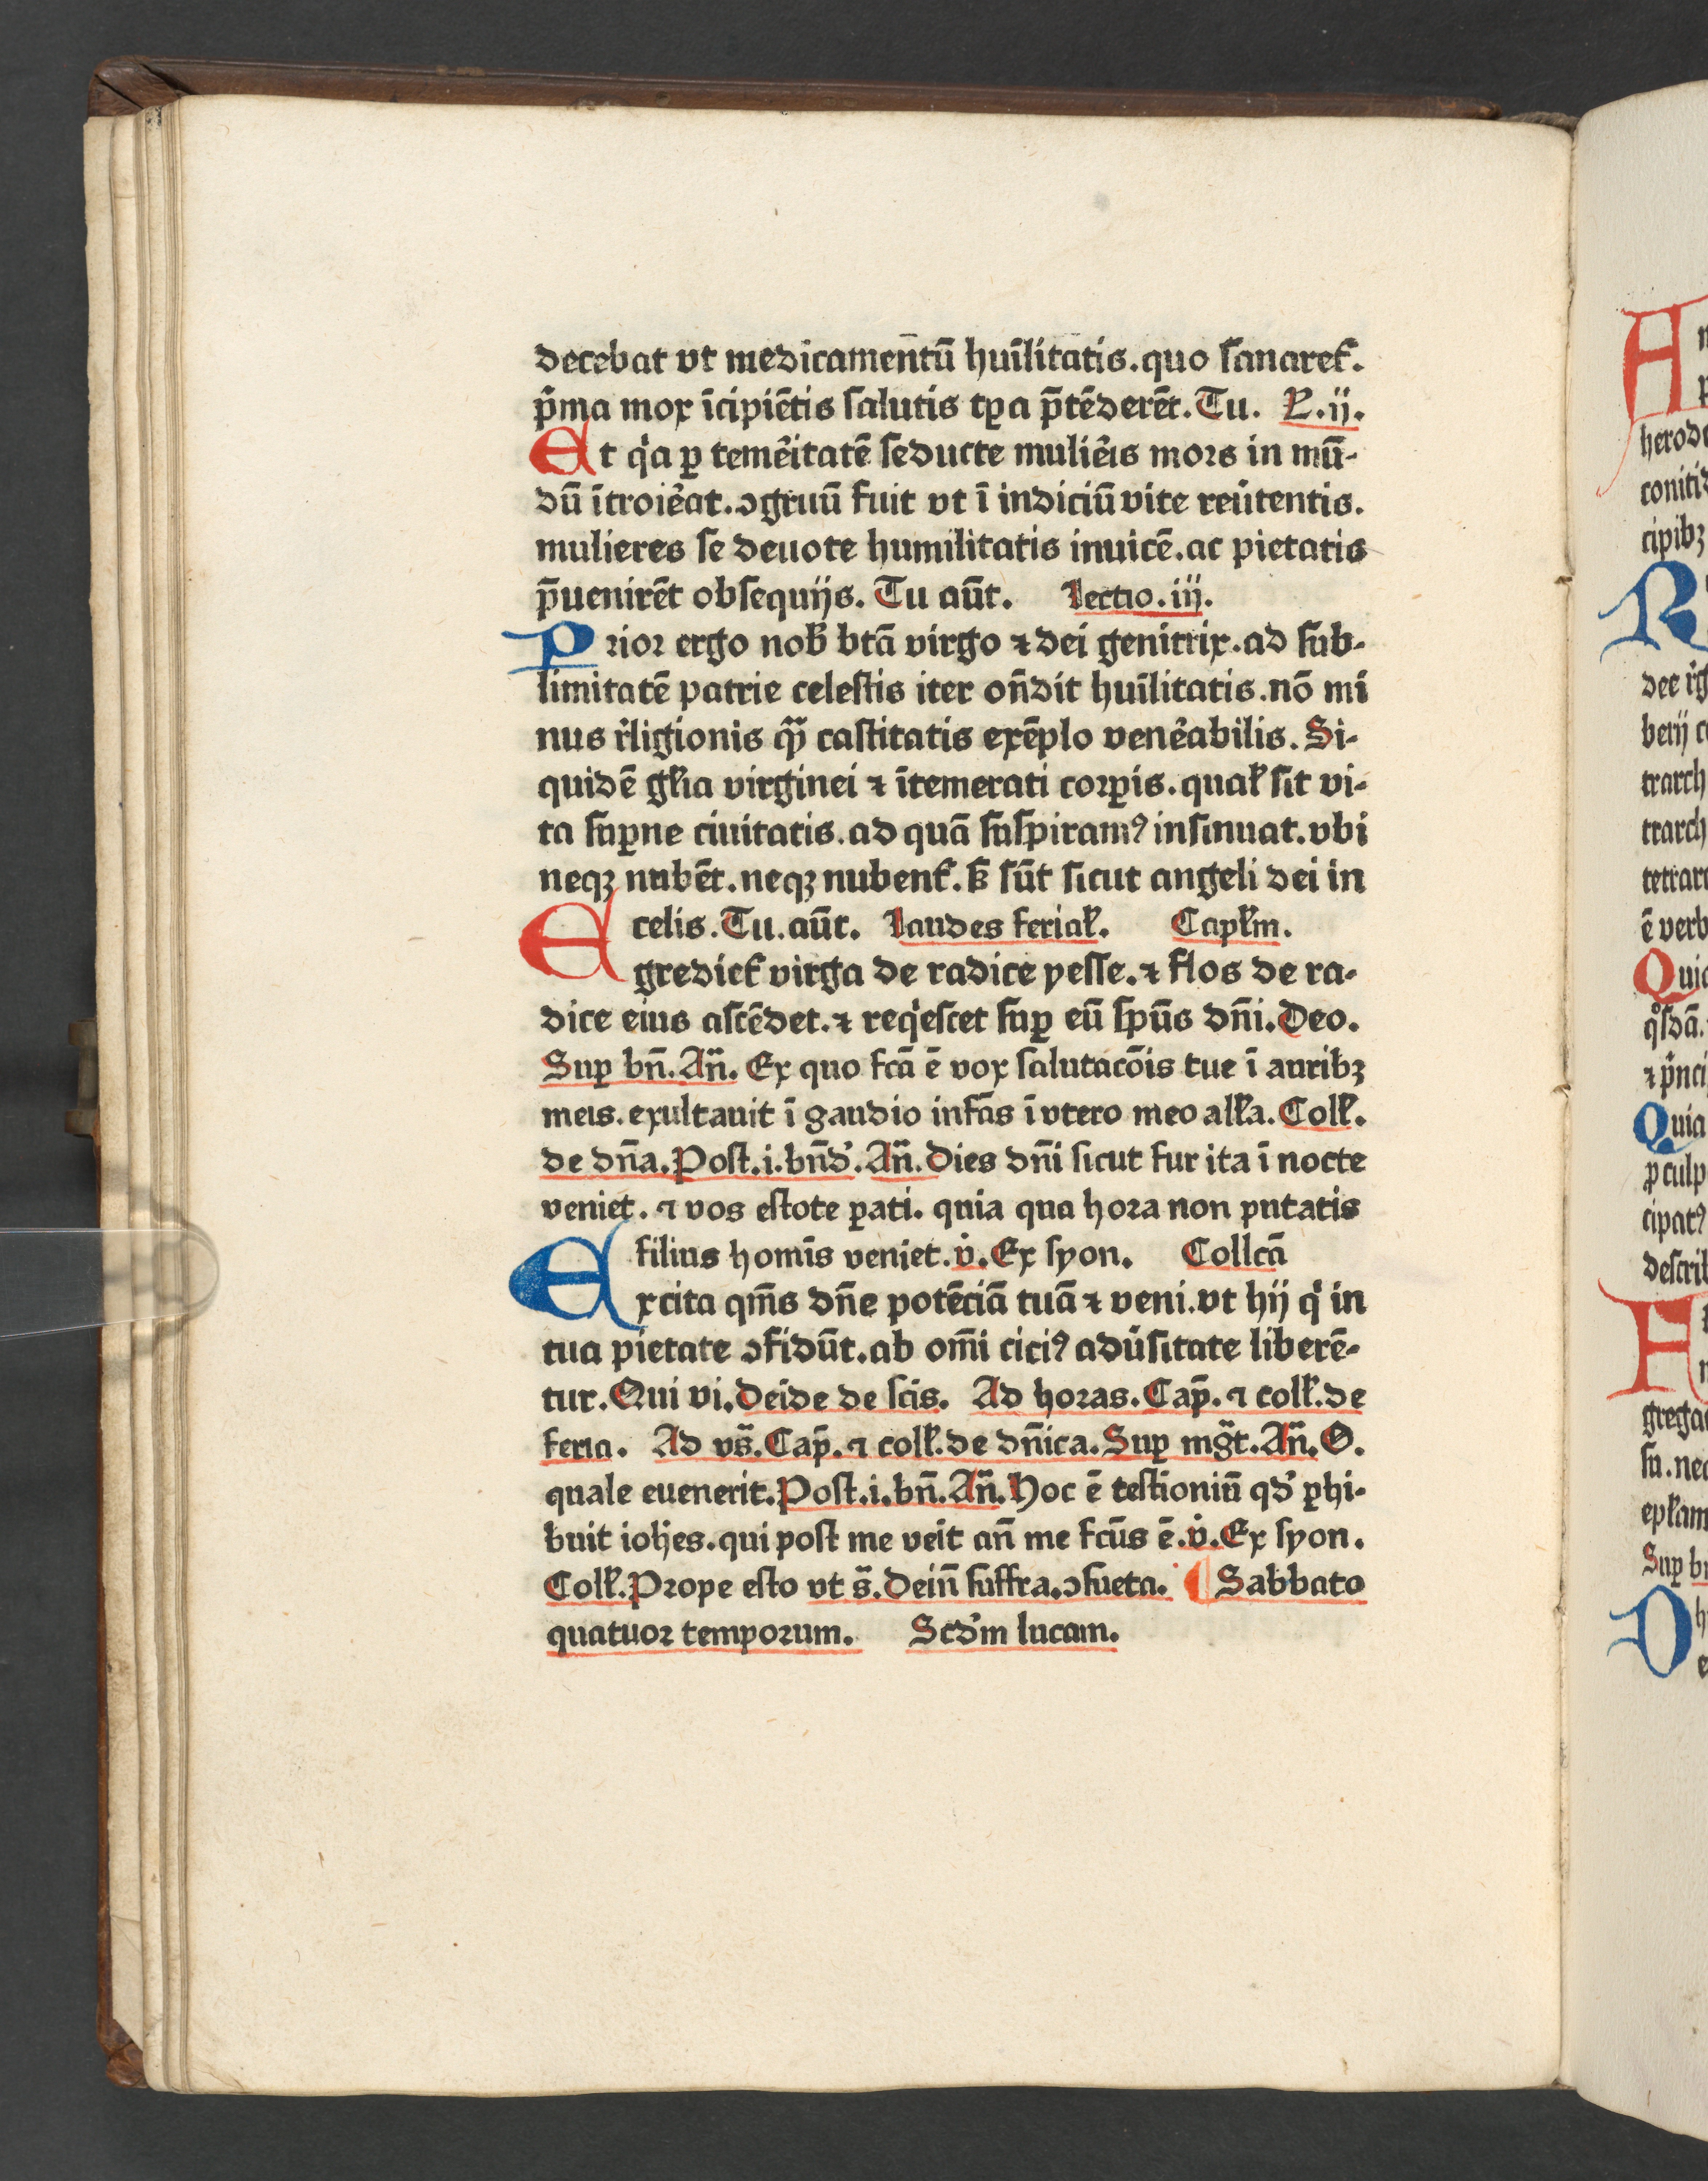 decebat vt medicamentū hūilitatis.quo ſanaret᷑.
p̄ma mox īcipiētis ſalutis tꝑa p̄tēderēt.Tu. L.ij.
Et qͥa ꝑ temeͥitatē ſeducte mulieͥis mors in mū-
dū ītroieͣat.ↄgruū fuit vt ī indiciū vite reūtentis.
mulieres ſe deuote humilitatis inuicē.ac pietatis
p̄uenirēt obſequijs. Tu aūt. Lectio.iij.
Prior ergo nob̄ btā virgo ⁊ dei genitrix.ad ſub-
limitatē patrie celeſtis iter on̄dit hūilitatis.nō mi
nus r̄ligionis qͣꝫ caſtitatis exēplo veneͣabilis. Si-
quidē gl̄ia virginei ⁊ ītemerati corꝑis.qual̄ ſit vi-
ta ſuꝑne ciuitatis.ad quā ſuſpiramꝰ inſinuat.vbi
neqꝫ nubēt.neqꝫ nubent᷑.ſꝫ ſūt ſicut angeli dei in
celis.Tu.aūt. Laudes ferial̄. Capl̄m.
Egrediet᷑ virga de radice yeſſe.⁊ flos de ra-
dice eius aſcēdet.⁊ reqͥeſcet ſuꝑ eū ſpūs dn̄i.Deo.
Suꝑ bn̄.An̄. Ex quo fcā ē vox ſalutacōis tue ī auribꝫ
meis.exultauit ī gaudio infās ī vtero meo all̄a.Coll̄.
de dn̄a.Poſt.i.bn̄d᷑.An̄.Dies dn̄i ſicut fur ita ī nocte
veniet. ⁊ vos eſtote ꝑati. quia qua hora non putatis
filius homīs veniet.v̇.Ex ſyon. Collcā
Excita qm̄s dn̄e potēciā tuā ⁊ veni.vt hij qͥ in
tua pietate ↄfidūt.ab om̄i ciciꝰ adūſitate liberē-
tur.Qui vi.Deide de ſcīs. Ad horas.Cap̄. ⁊ coll̄.de
feria. Ad vs̄.Cap̄. ⁊ coll̄.de dn̄ica.Suꝑ mḡt.An̄.O.
quale euenerit.Poſt.i.bn̄.An̄.Hoc ē teſtioniū qd᷑ ꝑhi-
buit ioh̄es.qui poſt me veīt an̄ me fcūs ē.v̇.Ex ſyon.
Coll̄.Prope eſto vt s̄.Dein̄ ſuffra.ↄſueta. ¶ Sabbato
quatuor temporum. Scd᷑m lucam.